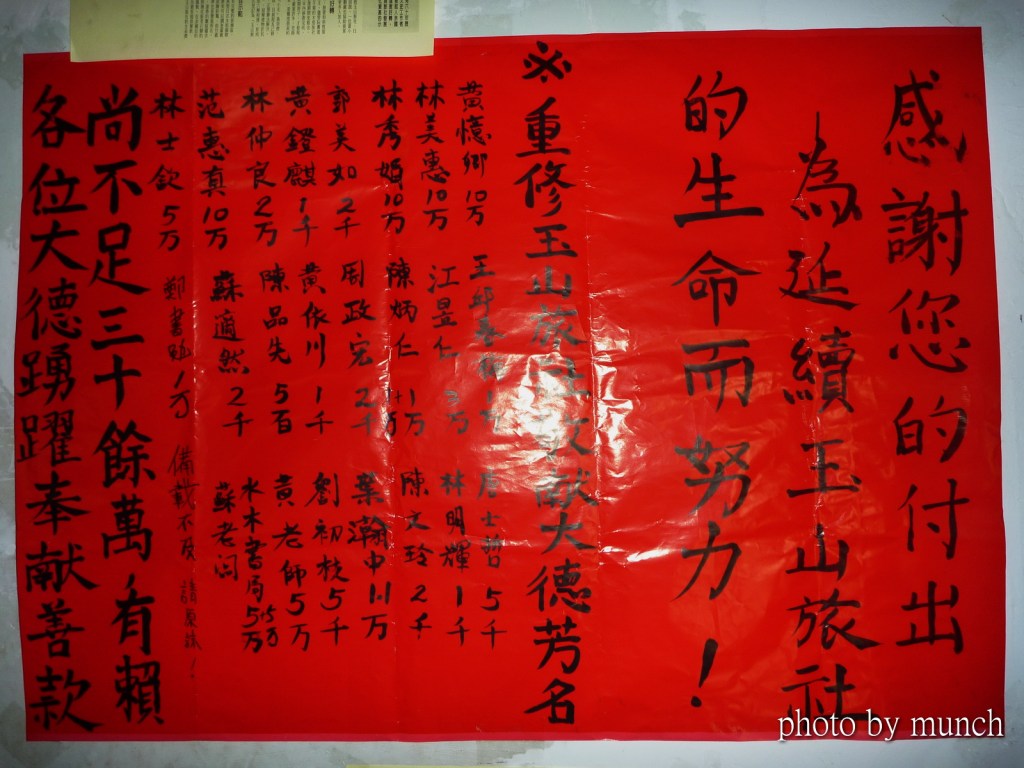 感謝您的付出
為延續玉山旅社
的生命而努力!
※重修玉山旅社敬献大德芳名
黃憶卿10万
林美惠10万 江昱仁 林明輝1千
林秀娟10万 陳炳仁 1万 陳文玲2千
郭美如2千 周政宏2千 葉瀚中1.1万
黃鐙麒1千 黃依川1千 劉初枝5千
林仲良2万 陳品先5百 黃老師5万
范惠真10万 蘇適然2千 水木書局5万
蘇老闆
林士欽5万 1万 備載不及 請原諒!
尚不足三十餘萬,有賴
各位大德踴躍奉献善款
photo by munch